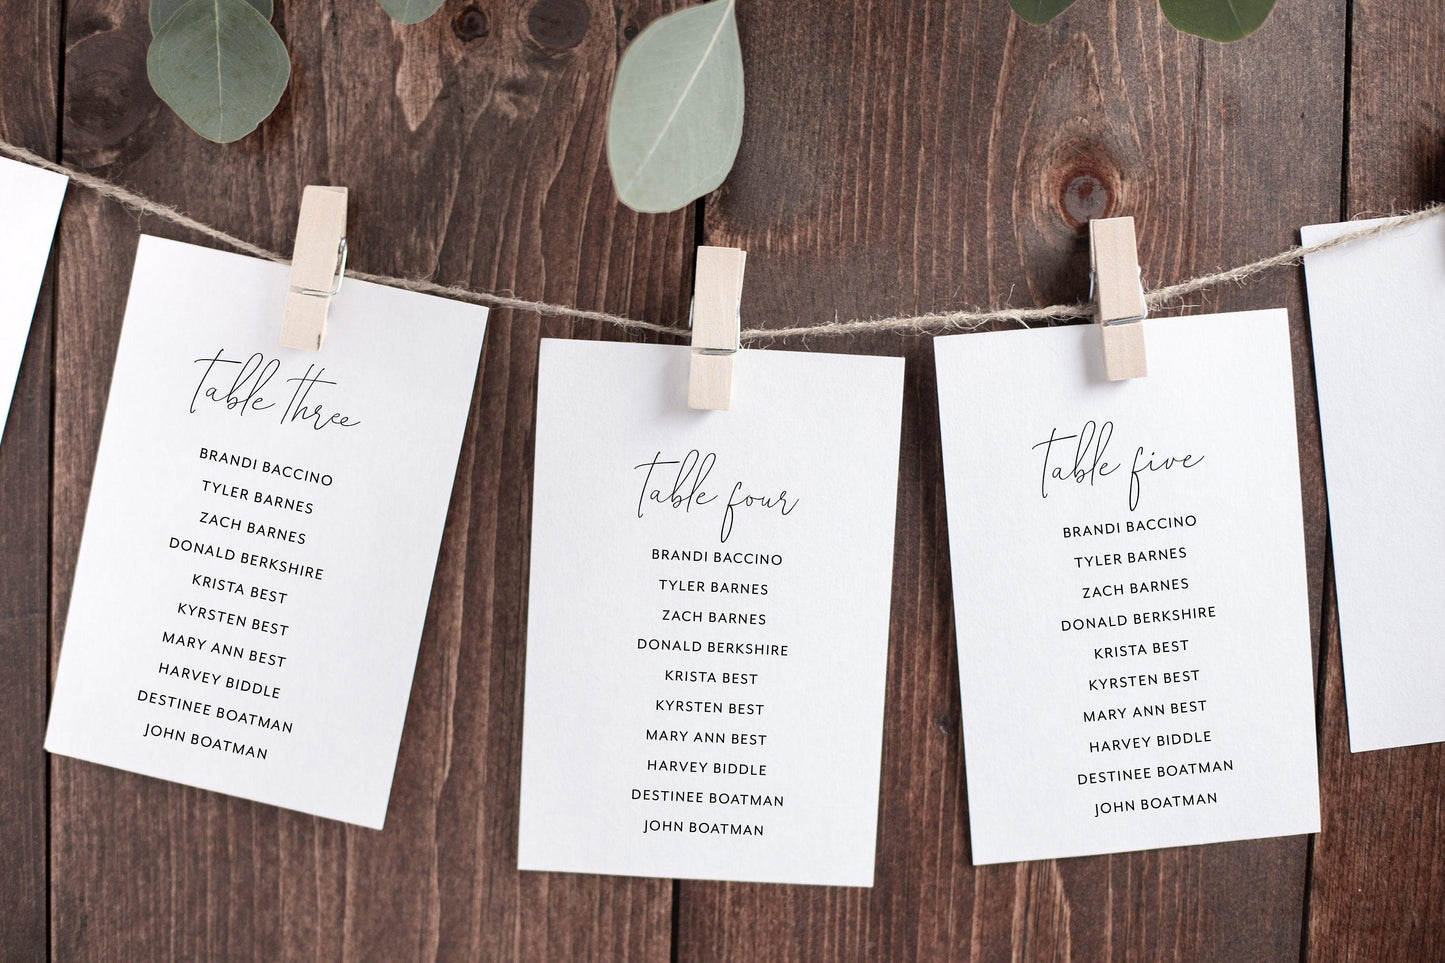 table three
BRANDI BACCINO
TYLER BARNES
ZACH BARNES
DONALD BERKSHIRE
KRISTA BEST
KYRSTEN BEST
MARY ANN BEST
HARVEY BIDDLE
DESTINEE BOATMAN
JOHN BOATMAN
table four
BRANDI BACCINO
TYLER BARNES
ZACH BARNES
DONALD BERKSHIRE
KRISTA BEST
KYRSTEN BEST
MARY ANN BEST
HARVEY BIDDLE
DESTINEE BOATMAN
JOHN BOATMAN
table five
BRANDI BACCINO
TYLER BARNES
ZACH BARNES
DONALD BERKSHIRE
KRISTA BEST
KYRSTEN BEST
MARY ANN BEST
HARVEY BIDDLE
DESTINEE BOATMAN
JOHN BOATMAN